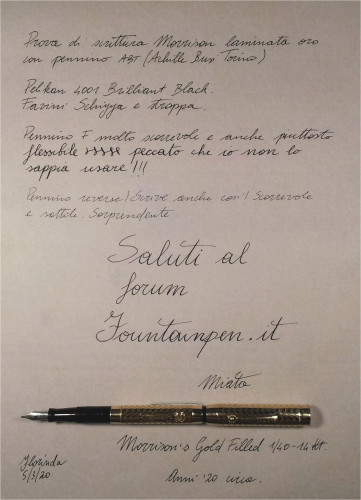 Prova di scrittura Morrison laminata oro
con pennino ABT (Achille Busi Torino)
Pelikan 4001 Brilliant Black.
Favini Schizza e strappa.
Pennino F molto scorrevole e anche piuttosto
flessibile peccato che io non lo
sappia usare!!!
Pennino reverse! Scrive anche così! Scorrevole
e sottile. Sorprendente.
Saluti al
forum
Fountainpen.it
Miata
Morrison's Gold Filled 1/40-14 kt.
Florinda
5/3/20
Anni '20 circa.